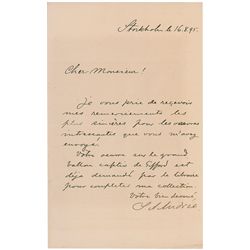 Stockholm le 16.8.95.
Cher Monsieur!
Je vous prie de recevoir
mes remerciements les
plus sincères pour les œuvres
intéressantes que vous m'avez
envoyé.
Votre œuvre sur le grand
ballon captif de Giffard est
déjà demandé par le libraire
pour completter ma collection.
Votre bien dévoué
S A Andrée